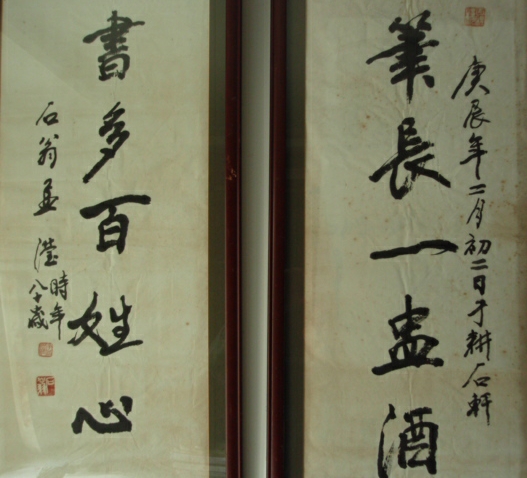 庚辰年二月初二日于耕石軒
筆長一盅酒
書多百姓心
石翁孟瀅
時年
八十歲